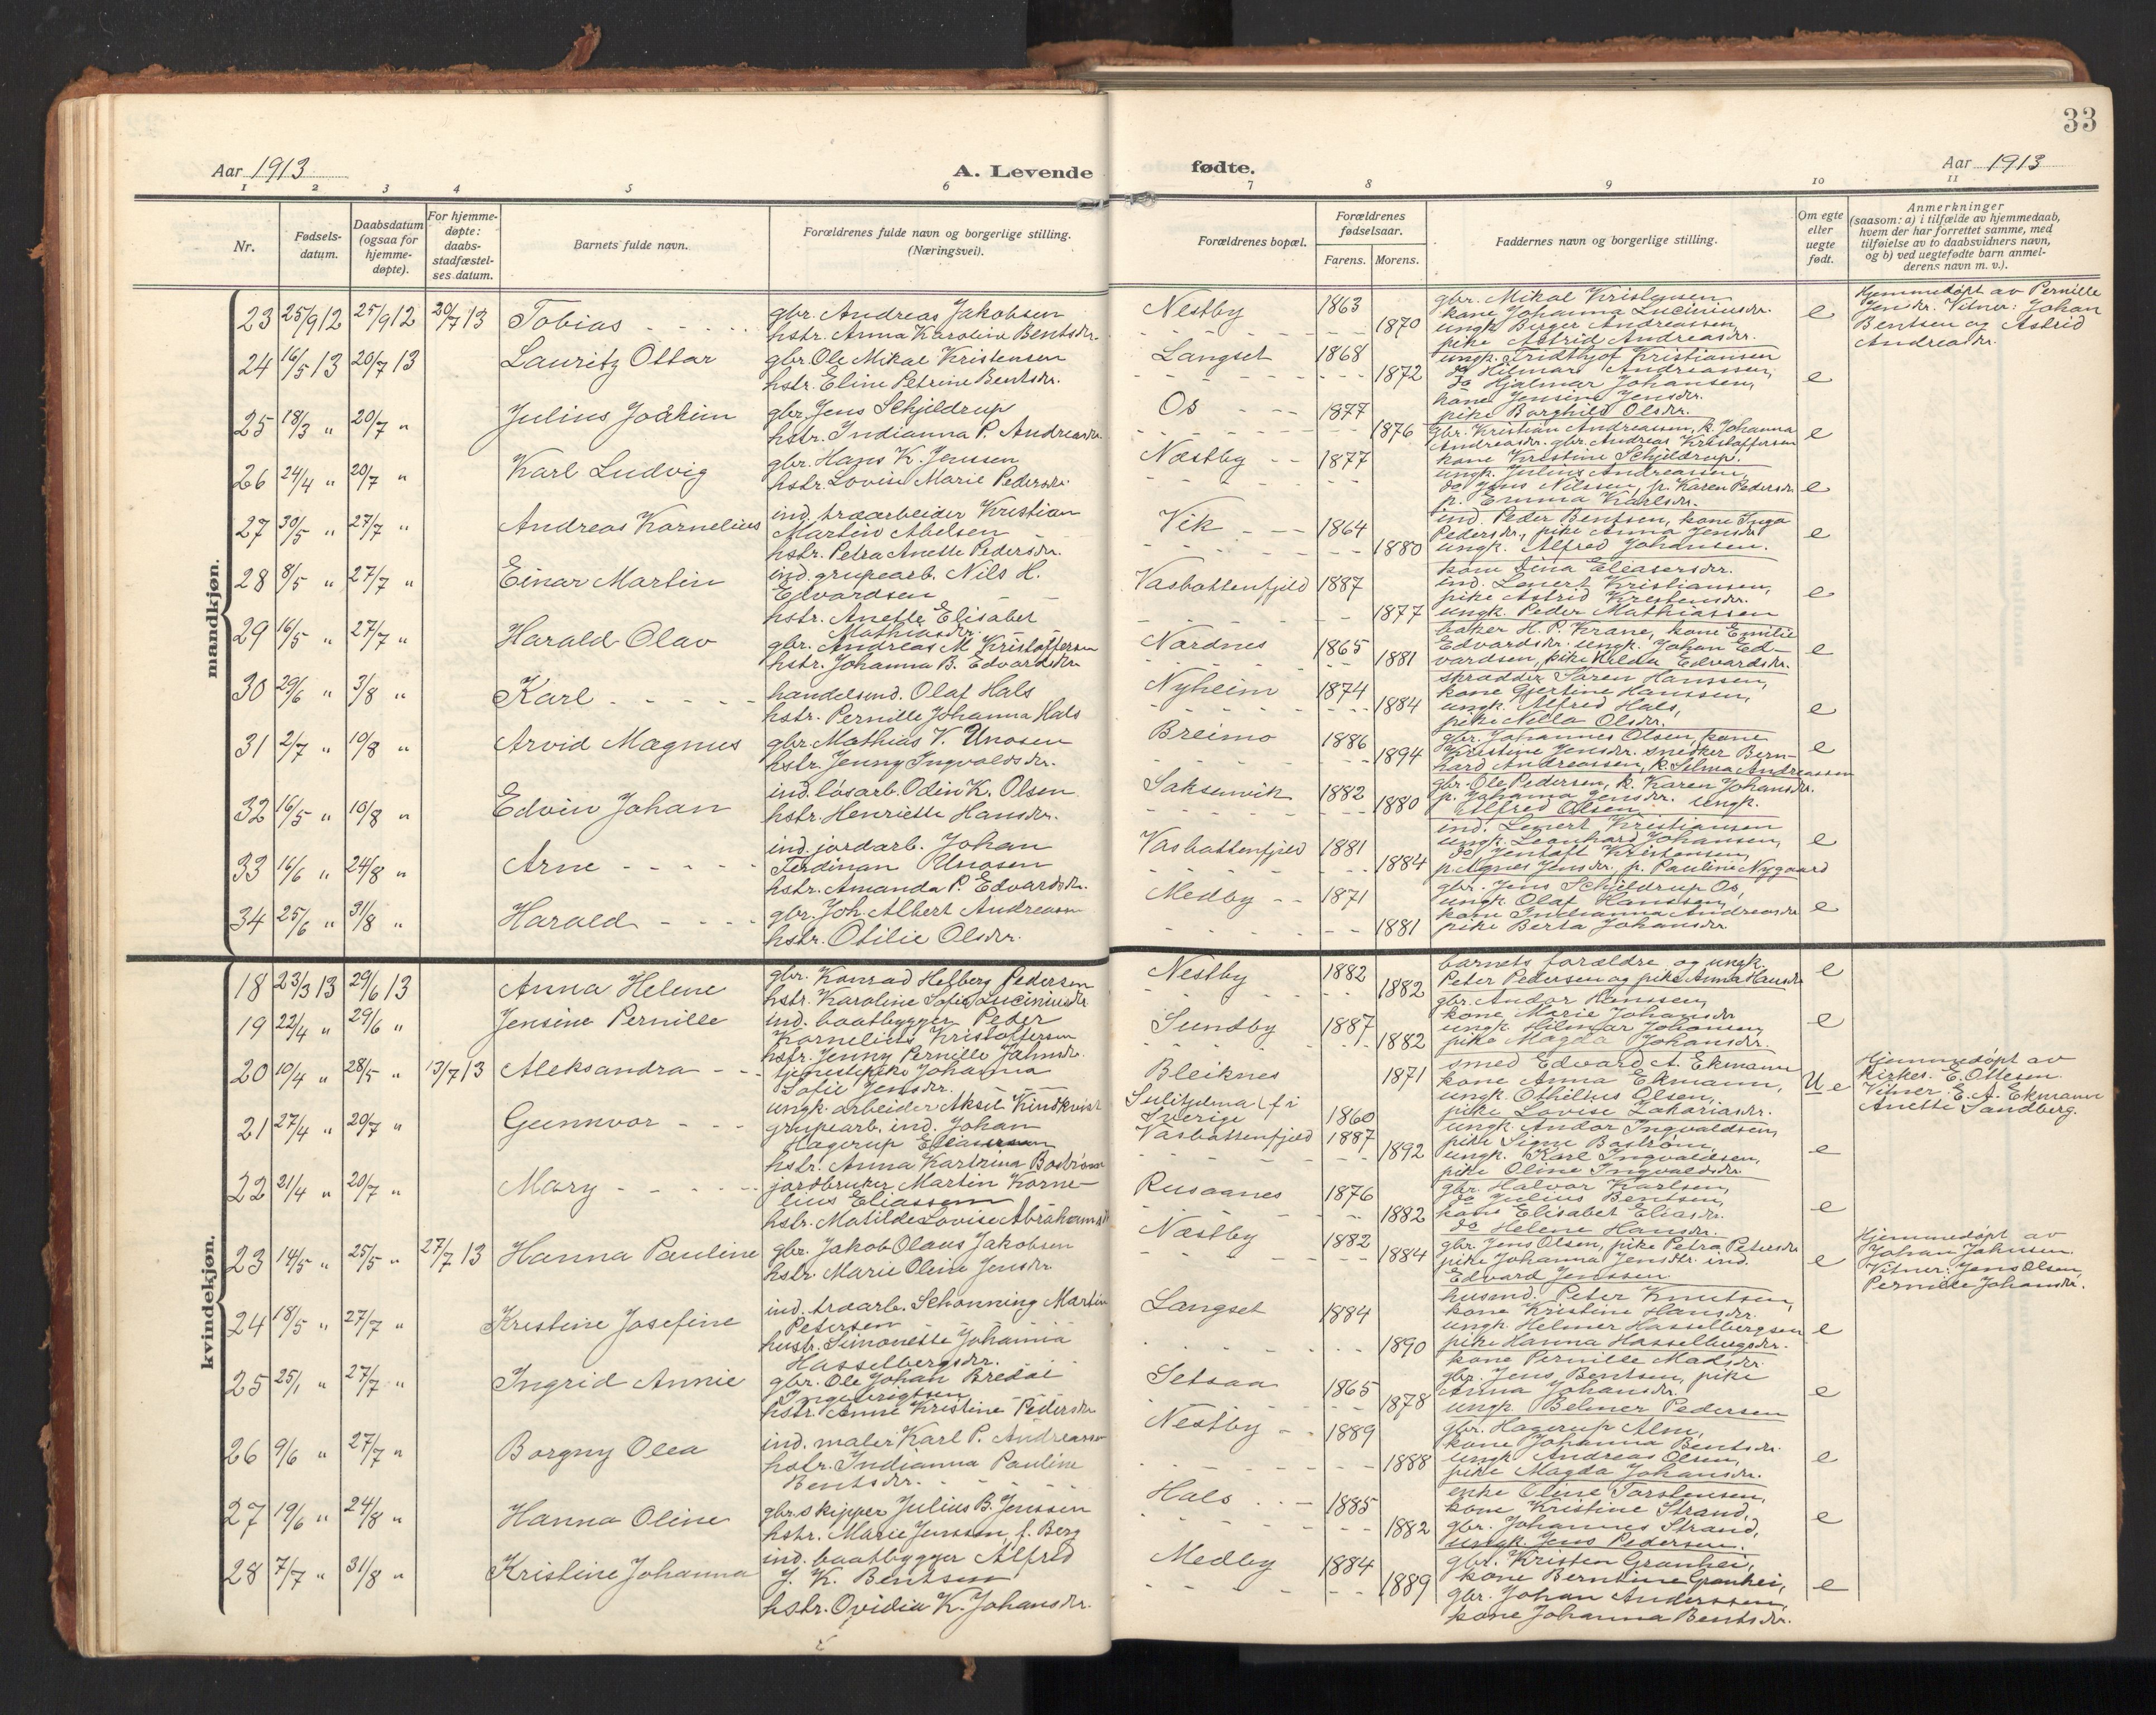 33
Aar 1913
A. Levende
fødte.
Aar 1913
1 2 3 4 5 6 7 8 9 10 11
Nr.
Fødsels-
datum.
Daabsdatum
(ogsaa for
hjemme-
døpte).
For hjemme-
døpte:
daabs-
stadfæstel-
ses datum.
Barnets fulde navn.
Forældrenes fulde navn og borgerlige stilling.
(Næringsvei).
Forældrenes bopæl.
Forældrenes
fødselsaar.
Farens. Morens.
Faddernes navn og borgerlige stilling.
Om egte
eller
uegte
født.
Anmerkninger
(saasom: a) i tilfælde av hjemmedaab,
hvem der har forrettet samme, med
tilføielse av to daabsvidners navn,
og b) ved uegtefødte barn anmel-
derens navn m. v.).
mandkjøn.
23 25/9 12 25/9 12 20/7 13 Tobias
gbr. Andreas Jakobsen
hstr. Anna Karoline Bentsdr.
Nestby 1863 1870
gbr. Mikal Kristensen
kone Johanna Luciniusdr.
ungk. Birger Andreassen
pike Astrid Andreasdr.
e
Hjemmedøpt av Pernille
Jensdr. Vitner: Johan
Bentsen og Astrid
Andreasdr.
24 16/5 13 20/7 13 Lauritz Ottar
gbr. Ole Mikal Kristensen
hstr. Eline Petrine Bentsdr.
Langset 1868 1872
ungk. Fridthjof Kristiansen
do Hilmar Andreassen,
do Hjalmar Johansen,
kone Jensine Jensdr.
pike Borghild Olsdr.
e
25 18/3 " 20/7 " Julius Joakim
gbr. Jens Schjeldrup
hstr. Indianna P. Andreasdr.
Os 1877 1876
gbr. Kristian Andreassen, k. Johanna
Andreasdr. gbr. Andreas Kristoffersen
kone Kristine Schjeldrup.
e
26 24/4 " 20/7 " Karl Ludvig
gbr. Hans K. Jenssen
hstr. Lovise Marie Pedersdr.
Næstby 1877
ungk. Julius Andreassen,
do Jens Nilssen, p. Karen Pedersdr.
p. Emma Karlsdr.
e
27 30/5 " 27/7 " Andreas Kornelius
ind. træarbeider Kristian
Martin Abelsen
hstr. Petra Anette Pedersdr.
Vik 1864 1880
ind. Peder Bentsen, kone Inga
Pedersdr., pike Anna Jensdr.
ungk. Alfred Johansen.
e
28 8/5 " 27/7 " Einar Martin
ind. grupearb. Nils H.
Edvardsen
hstr. Anette Elisabet
Mathiasdr.
Vasbottenfjeld 1887 1877
kone Dina Eliasersdr.
ind. Lenert Kristiansen,
pike Astrid Kristensdr.
ungk. Peder Mathiassen
e
29 16/5 " 27/7 " Harald Olav
gbr. Andreas M Kristoffersen
hstr. Johanna B. Edvardsdr.
Nordnes 1865 1881
baker H. P. Krane, kone Emilie
Edvardsdr. ungk. Johan Ed-
vardsen, pike Hilda Edvardsdr.
e
30 29/6 " 3/8 " Karl
handelsmd. Olaf Hals
hstr. Pernille Johanna Hals
Nyheim 1874 1884
skrædder Søren Hanssen,
kone Gjertine Hanssen,
ungk. Alfred Hals,
pike Nilla Olsdr.
e
31 2/7 " 10/8 " Arvid Magnus
gbr. Mathias V. Unosen
hstr. Jenny Ingvaldsdr.
Breimo 1886 1894
gbr. Johannes Olsen, kone
Kristine Jensdr. snedker Bern-
hard Andreassen, k. Selma Andreassen
e
32 16/5 " 10/8 " Edvin Johan
ind. løsarb. Odin K. Olsen
hstr. Henriette Hansdr.
Saksenvik 1882 1880
gbr. Ole Pedersen, k. Karen Johansdr.
p. Johanna Jensdr. ungk.
Alfred Olsen
33 16/6 " 24/8 " Arne
ind. jordarb. Johan
Ferdinan Unosen
hstr. Amanda P. Edvardsdr.
Vasbottenfjeld 1881 1884
ind. Lenert Kristiansen
ungk. Leonhard Johansen,
do Jentoft Kristensen,
p. Agnes Jensdr. p. Pauline Nygaard
e
34 25/6 " 31/8 " Harald
gbr. Joh. Albert Andreassen
hstr. Otilie Olsdr.
Medby 1871 1881
gbr. Jens Schjeldrup Os,
ungk. Olaf Hanssen,
kone Indianna Andreasdr.
pike Berta Johansdr.
e
kvindekjøn.
18 23/3 13 29/6 13 Anna Helene
gbr. Konrad Helberg Pedersen
hstr. Karoline Sofie Luciniusdr.
Nestby 1882 1882
barnets forældre og ungk.
Peter Pedersen og pike Anna Hansdr.
e
19 22/4 " 29/6 " Jensine Pernille
ind. baatbygger Peder
Kornelius Kristoffersen
hstr. Jenny Pernille Jahnsdr.
Sundby 1887 1882
gbr. Andor Hanssen,
kone Marie Johansdr
ungk. Hilmar Johansen,
pike Magda Johansdr.
e
20 10/4 " 28/5 " 13/7 13 Aleksandra
tjenestepike Johanna
Sofie Jensdr.
ungk. arbeider Aksel Kindkvist
Bleiknes
Sulitjelma f. i
Sverige
1871 1860
smed Edvard A. Ekmann
kone Anna Ekmann,
ungk. Othilius Olsen,
pike Lovise Zakariasdr.
Ue
Hjemmedøpt av
kirkes. E. Ottesen.
Vitner: E. A. Ekmann
Anette Sandberg.
21 27/4 " 20/7 " Gunnvor
grupearb. ind. Johan
Hagerup Eliassen
hstr. Anna Katrina Boström
Vasbottenfjeld 1887 1892
ungk. Andor Ingvaldsen,
pike Signe Boström,
ungk. Karl Ingvaldsen,
pike Oline Ingvaldsdr.
e
22 21/4 " 20/7 " Mary
jordbruker Martin Korne-
lius Eliassen
hstr. Matilde Lovise Abrahamsdr
Rusaanes 1876 1882
gbr. Halvor Karlsen,
do Julius Bentsen,
kone Elisabet Eliasdr.
do Helene Hansdr.
e
23 14/5 " 25/5 " 27/7 13 Hanna Pauline
gbr. Jakob Olaus Jakobsen
hstr. Marie Oline Jensdr.
Næstby 1882 1884
gbr. Jens Olsen, pike Petra Petersdr.
pike Johanna Jensdtr. ind.
Edvard Jenssen.
e
Hjemmedøpt av
Johan Jahnsen.
Vitner: Jens Olsen,
Pernille Johansdr.
24 18/5 " 27/7 " Kristine Josefine
ind. træarb. Schønning Martin
Petersen
hustr. Simonette Johanna
Hasselbergsdr.
Langset 1884 1890
husmd. Peter Knutsen,
kone Kristine Hansdr.
ungk. Helmer Hasselbergsen
pike Hanna Hasselbergsdr.
e
25 25/1 " 27/7 " Ingrid Annie
gbr. Ole Johan Bredai
Ingebrigtsen
hstr. Anne Kristine Pedersdr
Setsaa 1865 1878
kone Pernille Madsdr.
gbr. Jens Bentsen, pike
Anna Johansdr.
ungk. Belmer Pedersen
e
26 9/6 " 27/7 " Borgny Olea
ind. maler Karl P. Andreassen
hstr. Indianna Pauline
Bentsdr.
Nestby 1889 1888
gbr. Hagerup Alm,
kone Johanna Bentsdr.
ungk Andreas Olsen,
pike Magda Johansdr.
e
27 19/6 " 24/8 " Hanna Oline
gbr. skipper Julius B. Jenssen
hstr. Marie Jenssen f. Berg
Hals 1885 1882
enke Oline Torstensen,
kone Kristine Strand,
gbr. Johannes Strand,
ungk Jens Pedersen.
e
28 7/7 " 31/8 " Kristine Johanna
ind. baatbygger Alfred
J. K. Bentsen
hstr. Ovidia K. Johansdr.
Medby 1884 1889
gbr. Kristen Granhei,
kone Berntine Granhei,
gbr. Johan Anderssen,
kone Johanna Bentsdr.
e